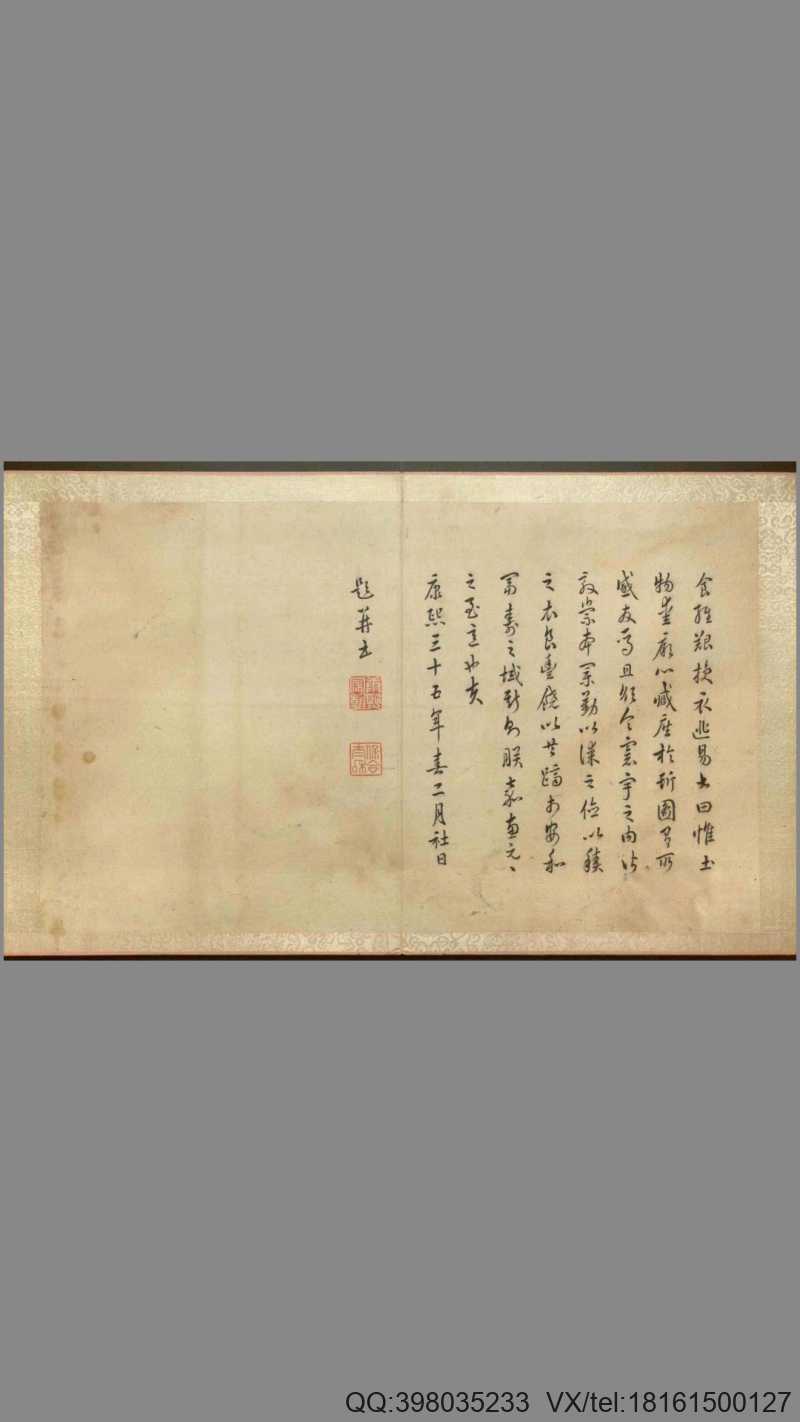 食維艱授衣匪易書曰惟土
物愛厥心臧庶於斯圖有所
感發焉且欲令寰宇之内皆
敦崇本業勤以謀之儉以積
之衣食豐饒以共躋於安和
富壽之域斯則朕嘉惠元〻
之至意也夫
康熙三十五年春二月社日
題并書
QQ:398035233 VX/tel:18161500127